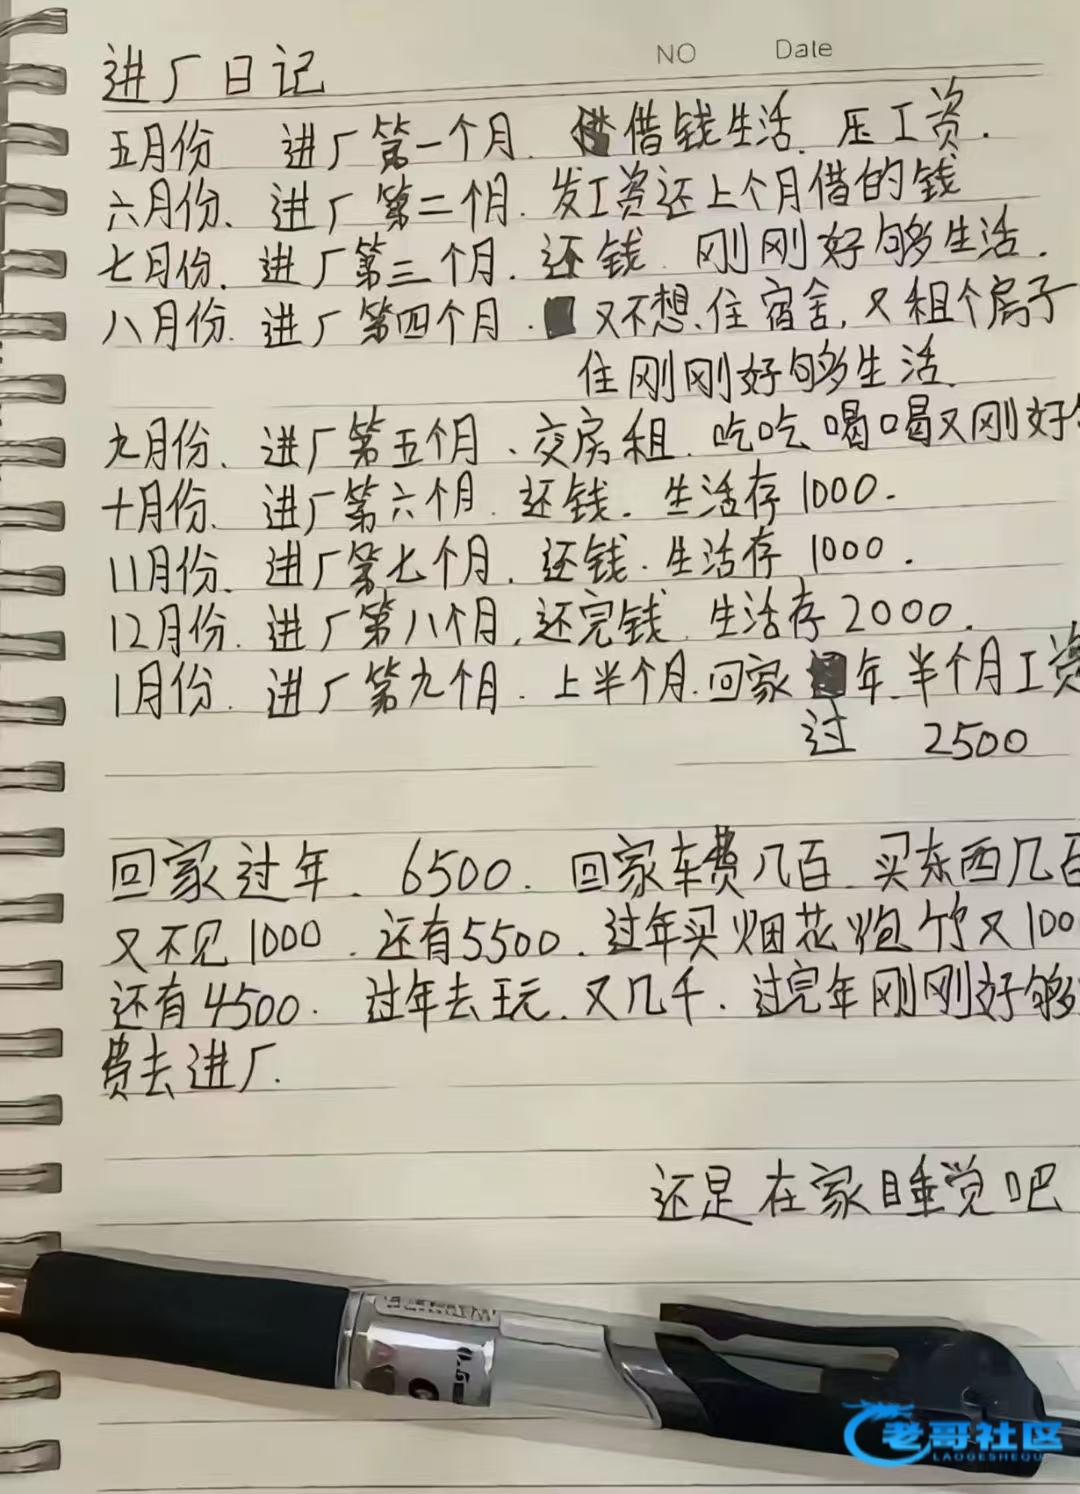 NO Date
进厂日记
五月份 进厂第一个月. 借钱生活. 压工资.
六月份. 进厂第二个月. 发工资还上个月借的钱
七月份. 进厂第三个月. 还钱. 刚刚好够生活.
八月份. 进厂第四个月. 又不想住宿舍, 又租个房子
住刚刚好够生活.
九月份. 进厂第五个月. 交房租. 吃吃喝喝又刚好
十月份. 进厂第六个月. 还钱. 生活存1000.
11月份. 进厂第七个月. 还钱. 生活存 1000.
12月份. 进厂第八个月. 还完钱. 生活存2000.
1月份. 进厂第九个月. 上半个月. 回家年. 半个月工资
过 2500
回家过年. 6500. 回家车费几百. 买东西几百
又不见1000. 还有5500. 过年买烟花炮竹又100
还有4500. 过年去玩. 又几千. 过完年刚刚好够
费去进厂.
还是在家睡觉吧
0.5
老哥社区
LAOGESHEQU